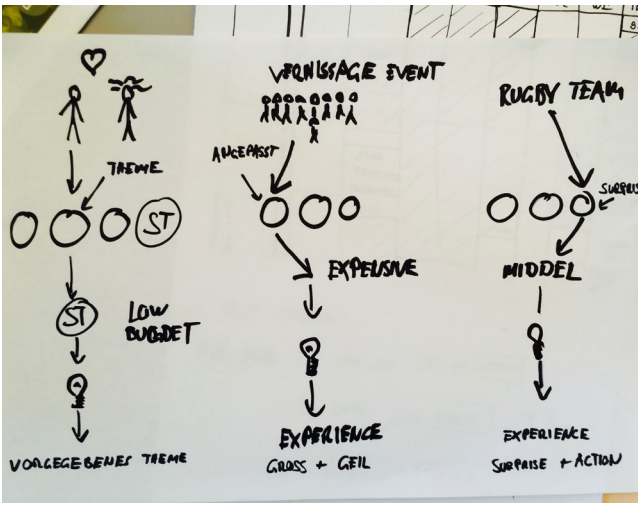 THEME
ST
ST
LOW
BUGDET
VORGEGEBENES THEME
VERNISSAGE EVENT
ANGEPASST
EXPENSIVE
EXPERIENCE
GROSS + GEIL
RUGBY TEAM
SURPRIS
MIDDEL
EXPERIENCE
SURPRISE + ACTION